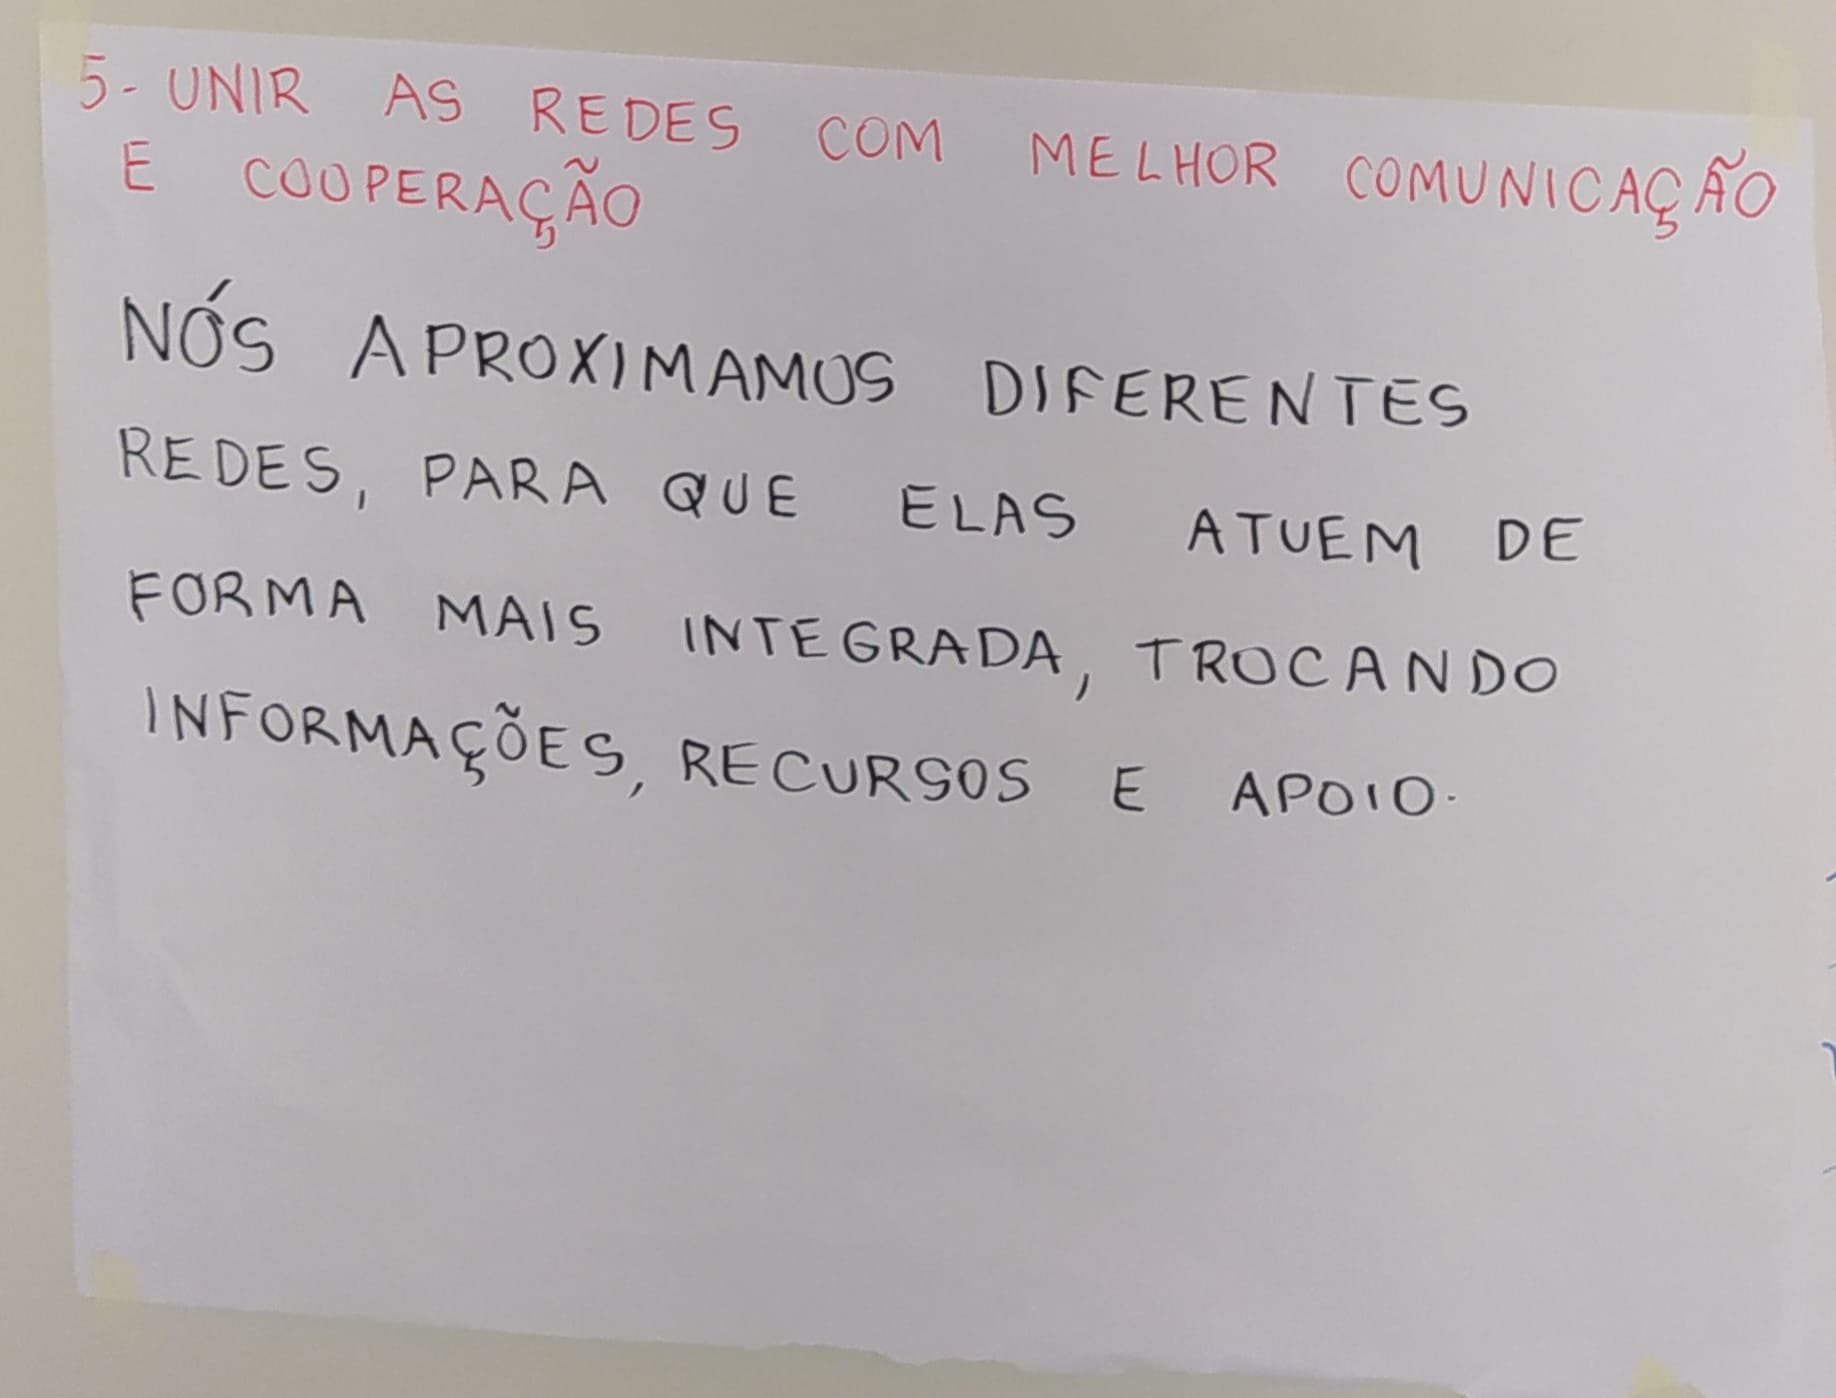 5- UNIR AS REDES COM MELHOR COMUNICAÇÃO
E COOPERAÇÃO
NÓS APROXIMAMOS DIFERENTES
REDES, PARA QUE ELAS ATUEM DE
FORMA MAIS INTEGRADA, TROCANDO
INFORMAÇÕES, RECURSOS E APOIO.